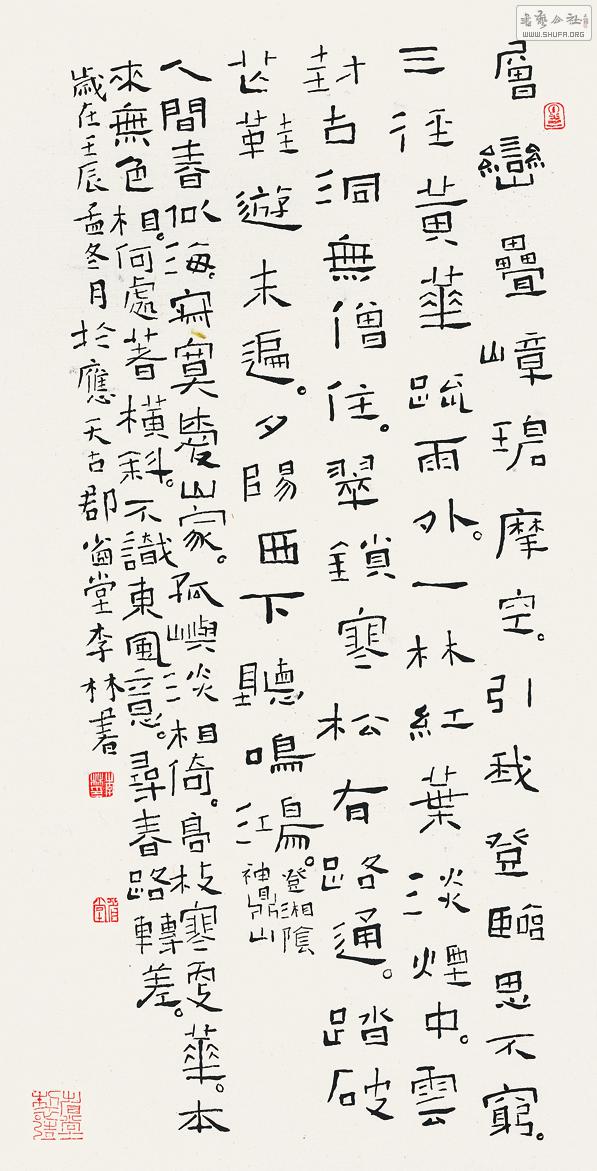 層巒疊嶂碧摩空。引我登臨思不窮。
三徑黃華疏雨外。一林紅葉淡煙中。雲
封古洞無僧住。翠鎖寒松有路通。踏破
芒鞋遊未遍。夕陽西下聽鳴鴻。
登湘陰
神鼎山
人間春似海。寂寞愛山家。孤嶼淡相倚。高枝寒更華。本
來無色相。何處著橫斜。不識東風意。尋春路轉差。
歲在壬辰孟冬月於應天古郡堂李林書
書藝公社
WWW.SHUFA.ORG